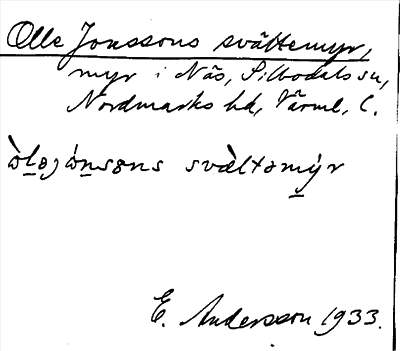 Olle Jonssons svältemyr,
myr i Näs, Silbodals sn,
Nordmarks hd, Värml. l.
òlᶕjónsɵns svæ̀ltəmýr
E. Andersson 1933.